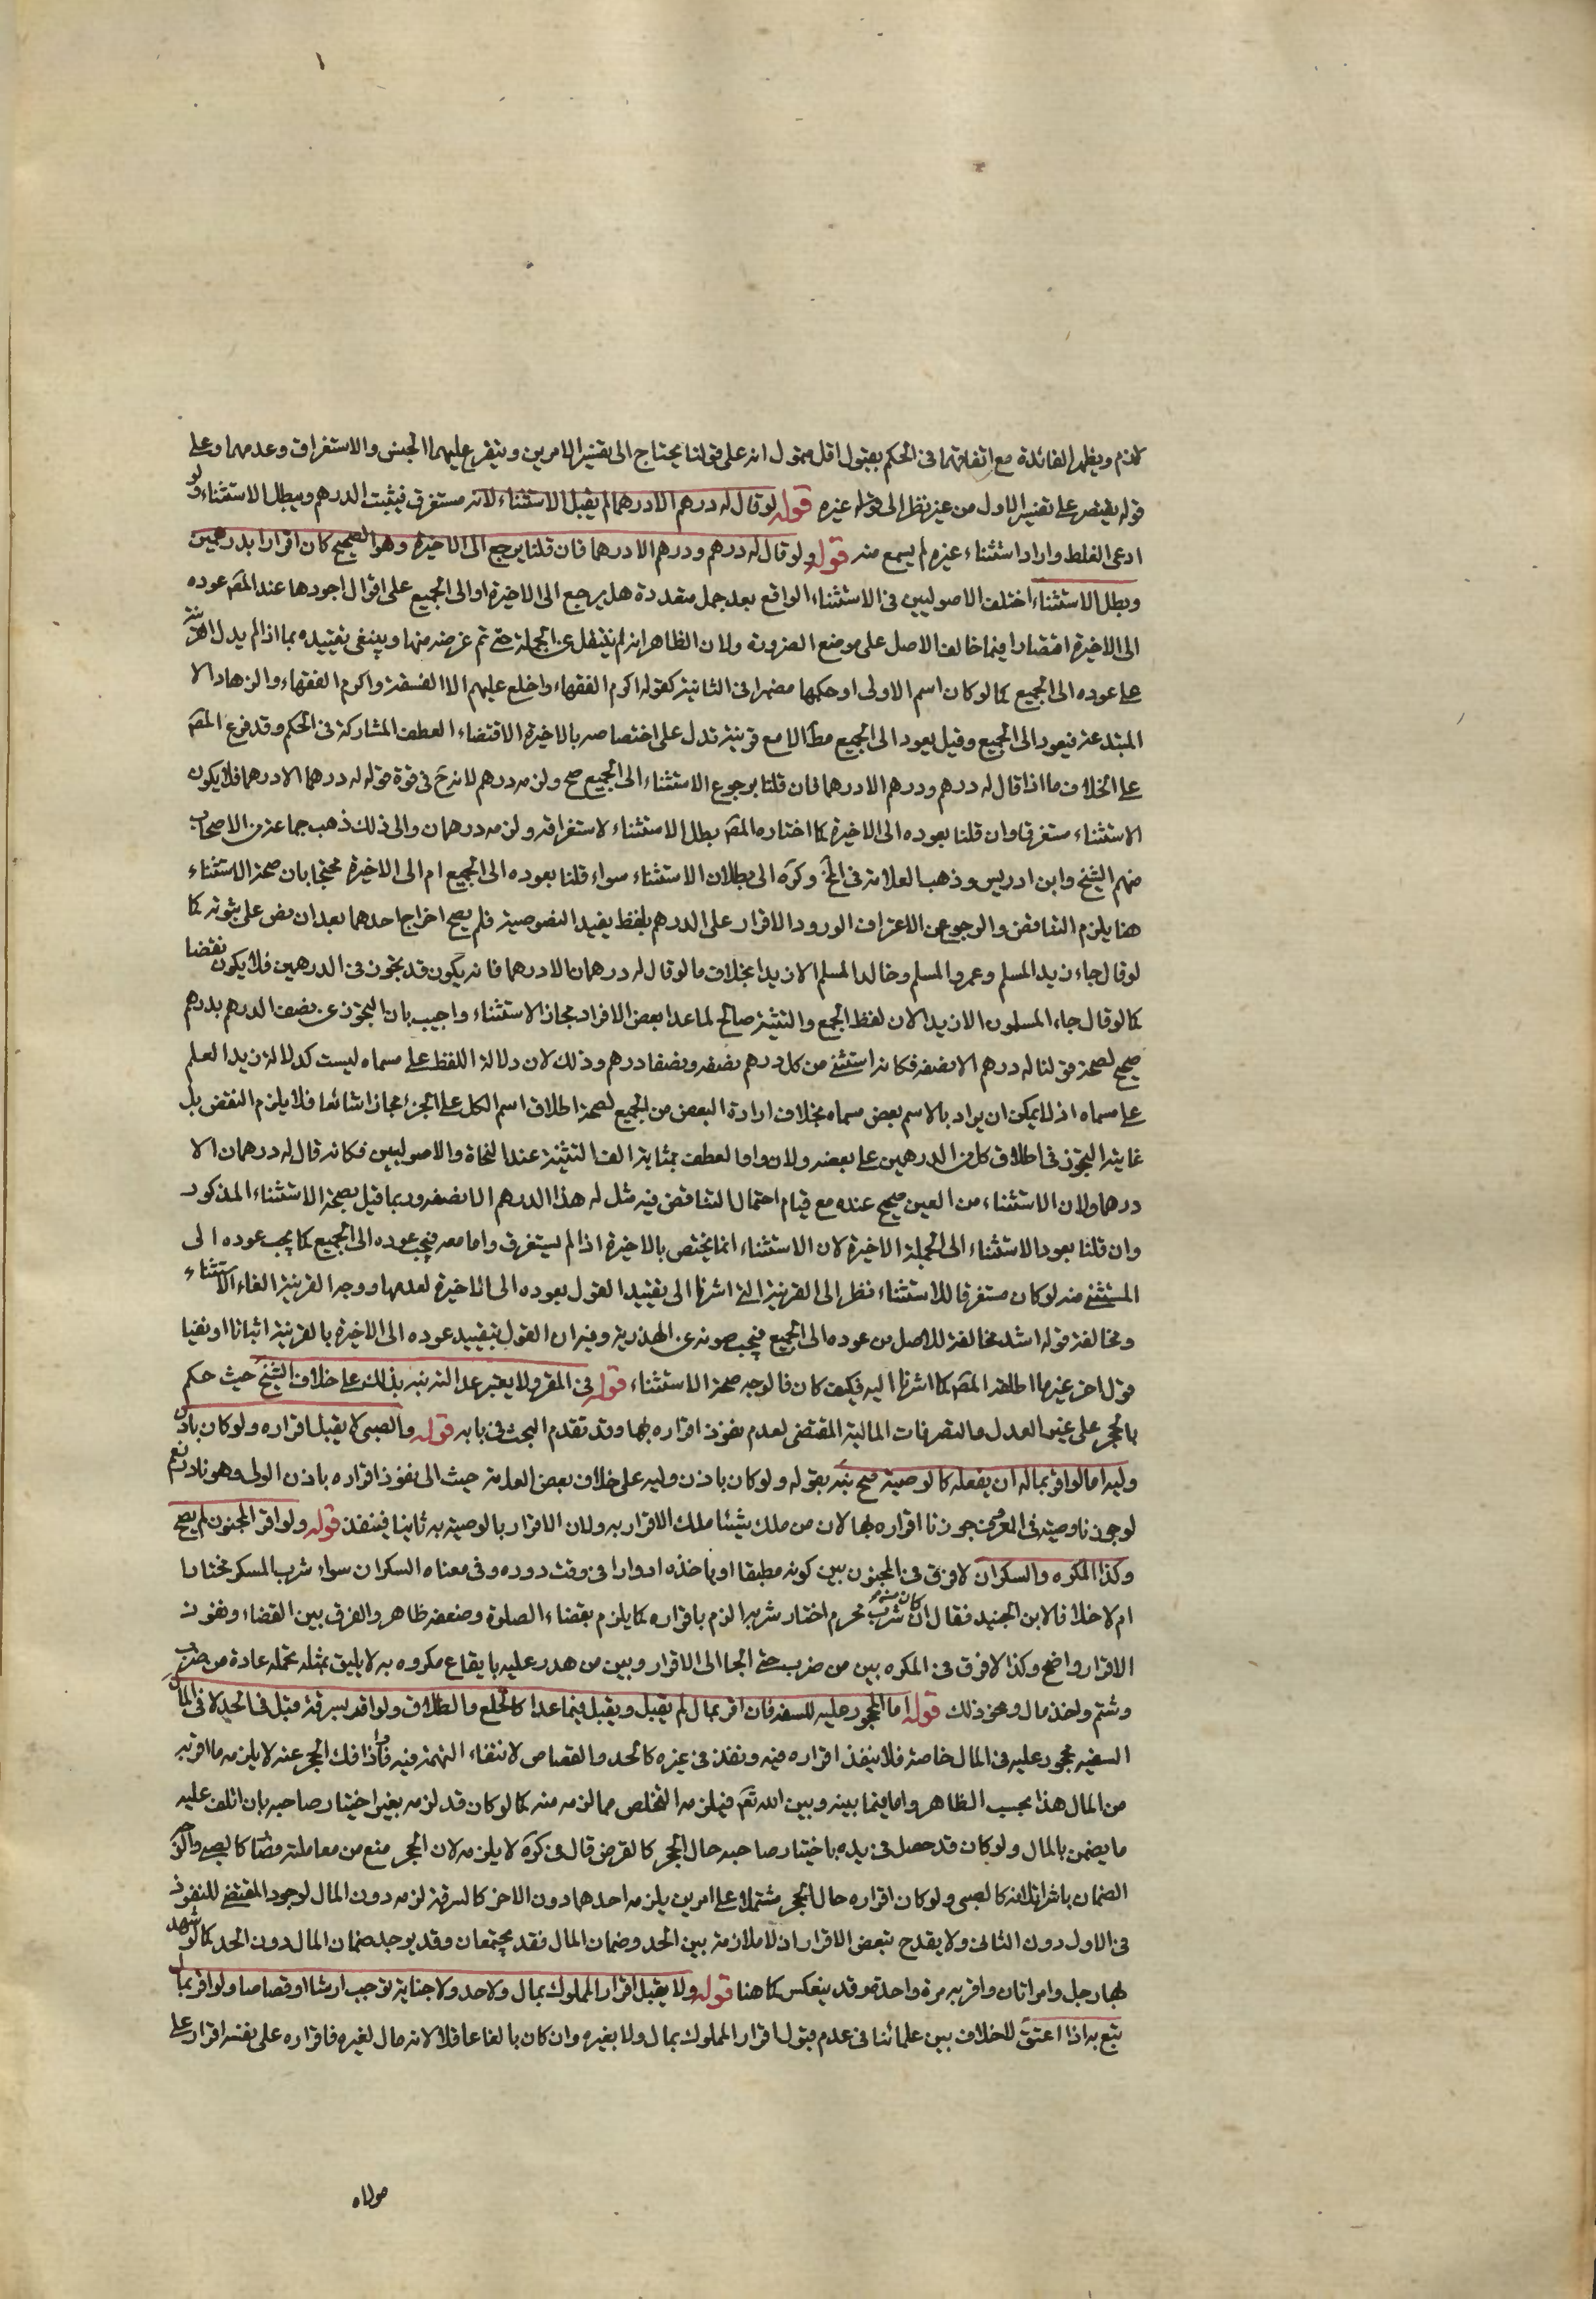 ١
كلام ويظهر الفائدة مع اتفاقهما فى الحكم بقبول اقل متمول انه على قولنا يحتاج الى تفسير الامرين ويتفرع عليهما الجنس والاستغراق وعدمهما وعلى
قوله يقتصر على تفسير الاول من غير نظر الى قوله غيره قوله لو قال له درهم الا درهما لم يقبل الاستثناء لانه مستغرق فيثبت الدرهم ويبطل الاستثناء ولو
ادعى الغلط واراد استثناء غيره لم يسمع منه قوله ولو قال له درهم ودرهم الا درهما فان قلنا يرجع الى الاخيرة وهو الصحيح كان اقرارا بدرهمين
وبطل الاستثناء اختلف الاصوليين فى الاستثناء الواقع بعد جمل متعددة هل يرجع الى الاخيرة او الى الجميع على اقوال اجودها عند المص عوده
الى الاخيرة اقتصارا فيما خالف الاصل على موضع الضرورة ولان الظاهر انه لم ينتقل عن الجملة حتى تم غرضه منها وينبغى تقييده بما اذا لم يدل القرينة
على عوده الى الجميع كما لو كان اسم الاولى او حكمها مضمرا فى الثانية كقوله اكرم الفقهاء واخلع عليهم الا الفسقة واكرم الفقهاء والزهاد الا
المبتدعة فيعود الى الجميع وقيل يعود الى الجميع مطا الا مع قرينة تدل على اختصاصه بالاخيرة لاقتضاء العطف المشاركة فى الحكم وقد فرع المص
على الخلاف ما اذا قال له درهم ودرهم الا درهما فان قلنا برجوع الاستثناء الى الجميع صح ولزمه درهم لانه ح فى قوة قوله له درهمان الا درهما فلا يكون
الاستثناء مستغرقا وان قلنا بعوده الى الاخيرة كما اختاره المص بطل الاستثناء لاستغراقه ولزمه درهمان والى ذلك ذهب جماعة من الاصحاب
منهم الشيخ وابن ادريس وذهب العلامة فى الخ وكره الى بطلان الاستثناء سواء قلنا بعوده الى الجميع ام الى الاخيرة محتجا بان صحة الاستثناء
هنا يلزم التناقض والرجوع عن الاعتراف لورود الاقرار على الدرهم بلفظ يفيد النصوصية فلم يصح اخراج احدهما بعد ان نص على ثبوته كما
لو قال جاء زيد المسلم وعمرو المسلم وخالد المسلم الا زيدا بخلاف ما لو قال له درهمان الا درهما فانه يكون قد تجوز فى الدرهمين فلا يكون نقضا
كما لو قال جاء المسلمون الا زيدا لان لفظ الجمع والتثنية صالح لما عدا بعض الافراد مجاز الاستثناء واجيب بان التجوز عن نصف الدرهم بدرهم
صحيح لصحة قولنا له درهم الا نصفه فكانه استثنى من كل درهم نصفه ونصفا درهم وذلك لان دلالة اللفظ على مسماه ليست كدلالة زيد العلم
على مسماه اذ لا يمكن ان يراد بالاسم بعض مسماه بخلاف ارادة البعض من الجميع لصحة اطلاق اسم الكل على الجزء مجازا شائعا فلا يلزم النقض بل
غايته التجوز فى اطلاق كل من الدرهمين على بعضه ولان واو العطف بمثابة الف التثنية عند النحاة والاصوليين فكانه قال له درهمان الا
درهما ولان الاستثناء من العين صحيح عنده مع قيام احتمال التناقض فيه مثل له هذا الدرهم الا نصفه وربما قيل بصحة الاستثناء المذكور
وان قلنا بعود الاستثناء الى الجملة الاخيرة لان الاستثناء انما يختص بالاخيرة اذا لم يستغرق واما معه فيجب عوده الى الجميع كما يجب عوده الى
المستثنى منه لو كان مستغرقا للاستثناء نظر الى القرينة التى اشرنا الى تقييد القول بعوده الى الاخيرة لعدمها ووجه القرينة الغاء الاستثناء
ومخالفة قوله اشد مخالفة للاصل من عوده الى الجميع فيجب صونه عن الهذرية وفيه ان القول بتقييد عوده الى الاخيرة بالقرينة اثباتا او نفيا
قول اخر غير ما اطلقه المص كما اشرنا اليه فكيف كان فالوجه صحة الاستثناء قوله فى المقر ولا يعتبر عدالته نبه بذلك على خلاف الشيخ حيث حكم
بالحجر على غير العدل مالتصرفات المالية المقتضى لعدم نفوذ اقراره بها وقد تقدم البحث فى بابه قوله والصبى لا يقبل اقراره ولو كان باذن
وليه اما لو اقر بماله ان يفعله كالوصية صح نبه بقوله ولو كان باذن وليه على خلاف بعض العامة حيث الى نفوذ اقراره باذن الولى وهو نادر نعم
لو جوزنا وصيته فى المعروف جوزنا اقراره بها لان من ملك شيئا ملك الاقرار به ولان الاقرار بالوصية به ثانيا فينفذ قوله ولو اقر المجنون لم يصح
وكذا المكره والسكران لا فرق فى المجنون بين كونه مطبقا او ياخذه ادوارا فى وقت دوره وفى معناه السكران سواء شرب المسكر مختارا
ام لا خلافا لابن الجنيد فقال ان كان شرب محرم اختار شربه الزم باقراره كما يلزم بقضاء الصلوة وضعفه ظاهر والفرق بين القضاء ونفوذ
الاقرار واضح وكذا لا فرق فى المكره بين من ضرب حتى الجا الى الاقرار وبين من هدر عليه بايقاع مكروه به لا يليق بمثله تحمله عادة من ضرب
وشتم واخذ مال ونحو ذلك قوله اما المحجور عليه للسفه فان اقر بمال لم يقبل ويقبل فيما عداه كالخلع والطلاق ولو اقر بسرقة قبل فى الحد لا فى المال
السفيه محجور عليه فى المال خاصة فلا ينفذ اقراره فيه ونفذ فى غيره كالحد والقصاص لانتفاء التهمة فيه فاذا فك الحجر عنه لا يلزمه ما اقر به
من المال هذا بحسب الظاهر واما فيما بينه وبين الله تعم فيلزمه التخلص مما لزمه منه كما لو كان قد لزمه بغير اختيار صاحبه بان اتلف عليه
ما يضمن بالمال ولو كان قد حصل فى يده باختيار صاحبه حال الحجر كالقرض قال فى كره لا يلزمه لان الحجر منع من معاملته فصا كالصبى والوجه
الضمان باشرائلافه كالصبى ولو كان اقراره حال الحجر مشتملا على امرين يلزمه احدهما دون الاخر كالسرقة لزمه دون المال لوجود المقتضى للنفوذ
فى الاول دون الثانى ولا يقدح تبعض الاقرار اذ لا ملازمة بين الحد وضمان المال فقد يجتمعان وقد يوجد ضمان المال دون الحد كما لو شهد
بها رجل وامراتان واقر به مرة واحدة وقد ينعكس كما هنا قوله ولا يقبل اقرار المملوك بمال ولا حد ولا جناية توجب ارشا او قصاصا ولو اقر بمال
يتبع به اذا اعتق لا خلاف بين علمائنا فى عدم قبول اقرار المملوك بمال ولا بغيره وان كان بالغا عاقلا لانه مال لغيره فاقراره على نفسه اقرار على
مولاه